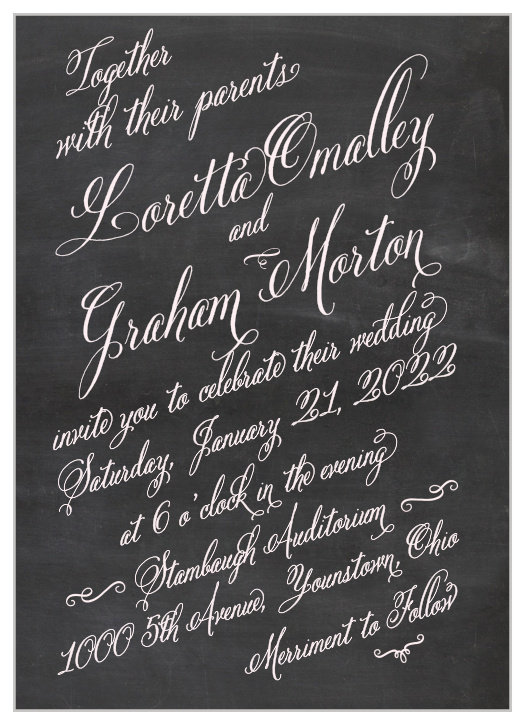 Together
with their parents
Loretta Omalley
and
Graham Morton
invite you to celebrate their wedding
Saturday, January 21, 2022
at 6 o'clock in the evening
Stambaugh Auditorium
1000 5th Avenue, Younstown, Ohio
Merriment to Follow